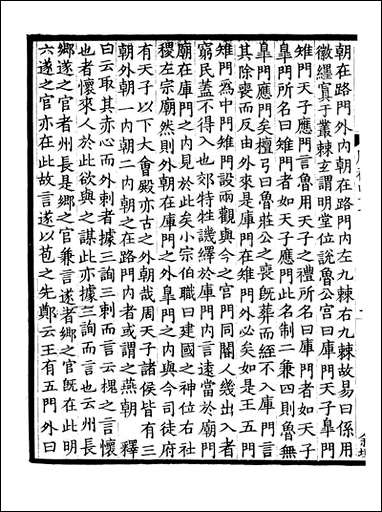 朝在路門外內朝在路門內左九棘右九棘故易曰係用
徽纆寘于叢棘玄謂明堂位說魯公宮曰庫門天子皐門
雉門天子應門言魯用天子之禮所名曰庫門者如天子
皐門所名曰雉門者如天子應門此名制二兼四則魯無
皐門應門矣檀弓曰魯莊公之喪既葬而絰不入庫門言
其除喪而反由外來是庫門在雉門外必矣如是王五門
雉門為中門雉門設兩觀與今之宮門同閽人幾出入者
窮民蓋不得入也郊特牲譏繹於庫門內言遠當於廟門
廟在庫門之內見於此矣小宗伯職曰建國之神位右社
稷左宗廟然則外朝在庫門之外皐門之內與今司徒府
有天子以下大會殿亦古之外朝哉周天子諸侯皆有三
朝外朝一內朝二內朝之在路門內者或謂之燕朝　釋
曰云取其赤心而外刺者據三詢三刺而言云槐之言懷
也者懷來人於此欲與之謀此亦據三詢而言也云州長
鄉遂之官者州長是鄉之官兼言遂者鄉之官既在此明
六遂之官亦在此故言遂以苞之先鄭云王有五門外曰